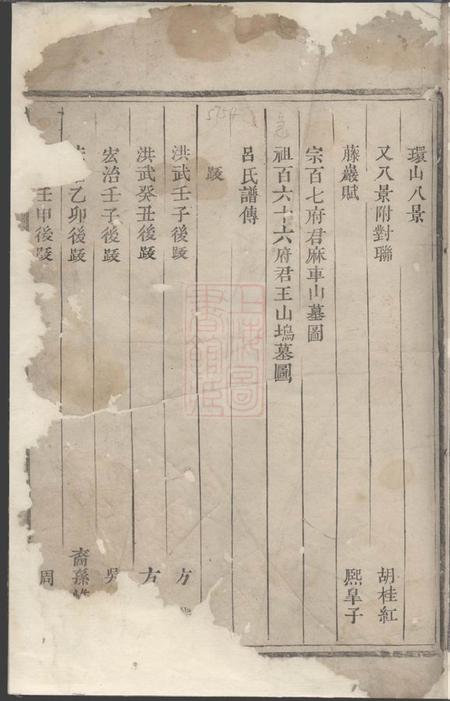 環山八景
又八景附對聯 胡桂紅
藤巖賦 熙皐子
宗百七府君麻車山墓圖
祖百六十六府君王山塢墓圖
呂氏譜傳
跋
洪武壬子後跋 方
洪武癸丑後跋 方
宏治壬子後跋 吳
乙卯後跋 裔孫
壬甲後跋 周
上海圖書館藏